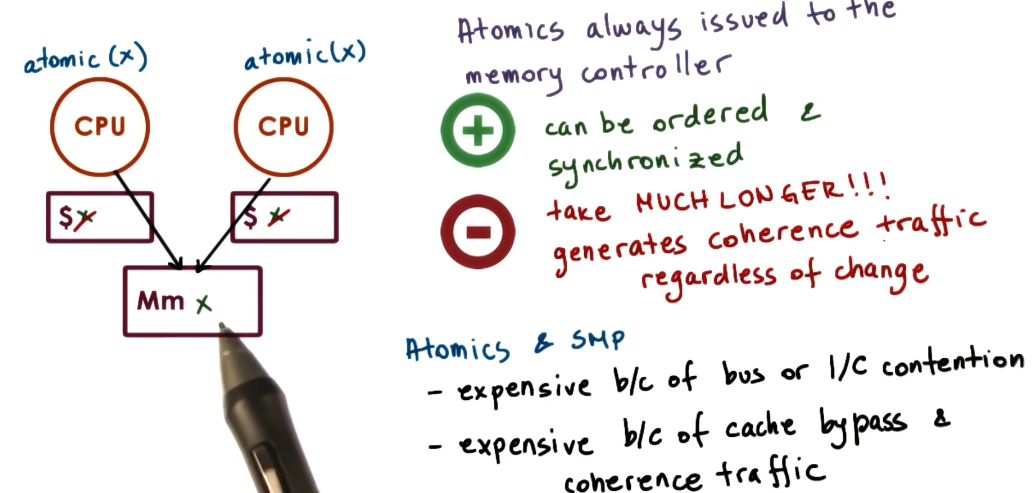 atomic (x)
atomic(x)
CPU
CPU
$ x
$ x
Mm x
Atomics always issued to the
memory controller
+
can be ordered &
synchronized
-
take MUCH LONGER!!!
generates coherence traffic
regardless of change
Atomics & SMP
- expensive b/c of bus or I/C contention
- expensive b/c of cache bypass &
coherence traffic